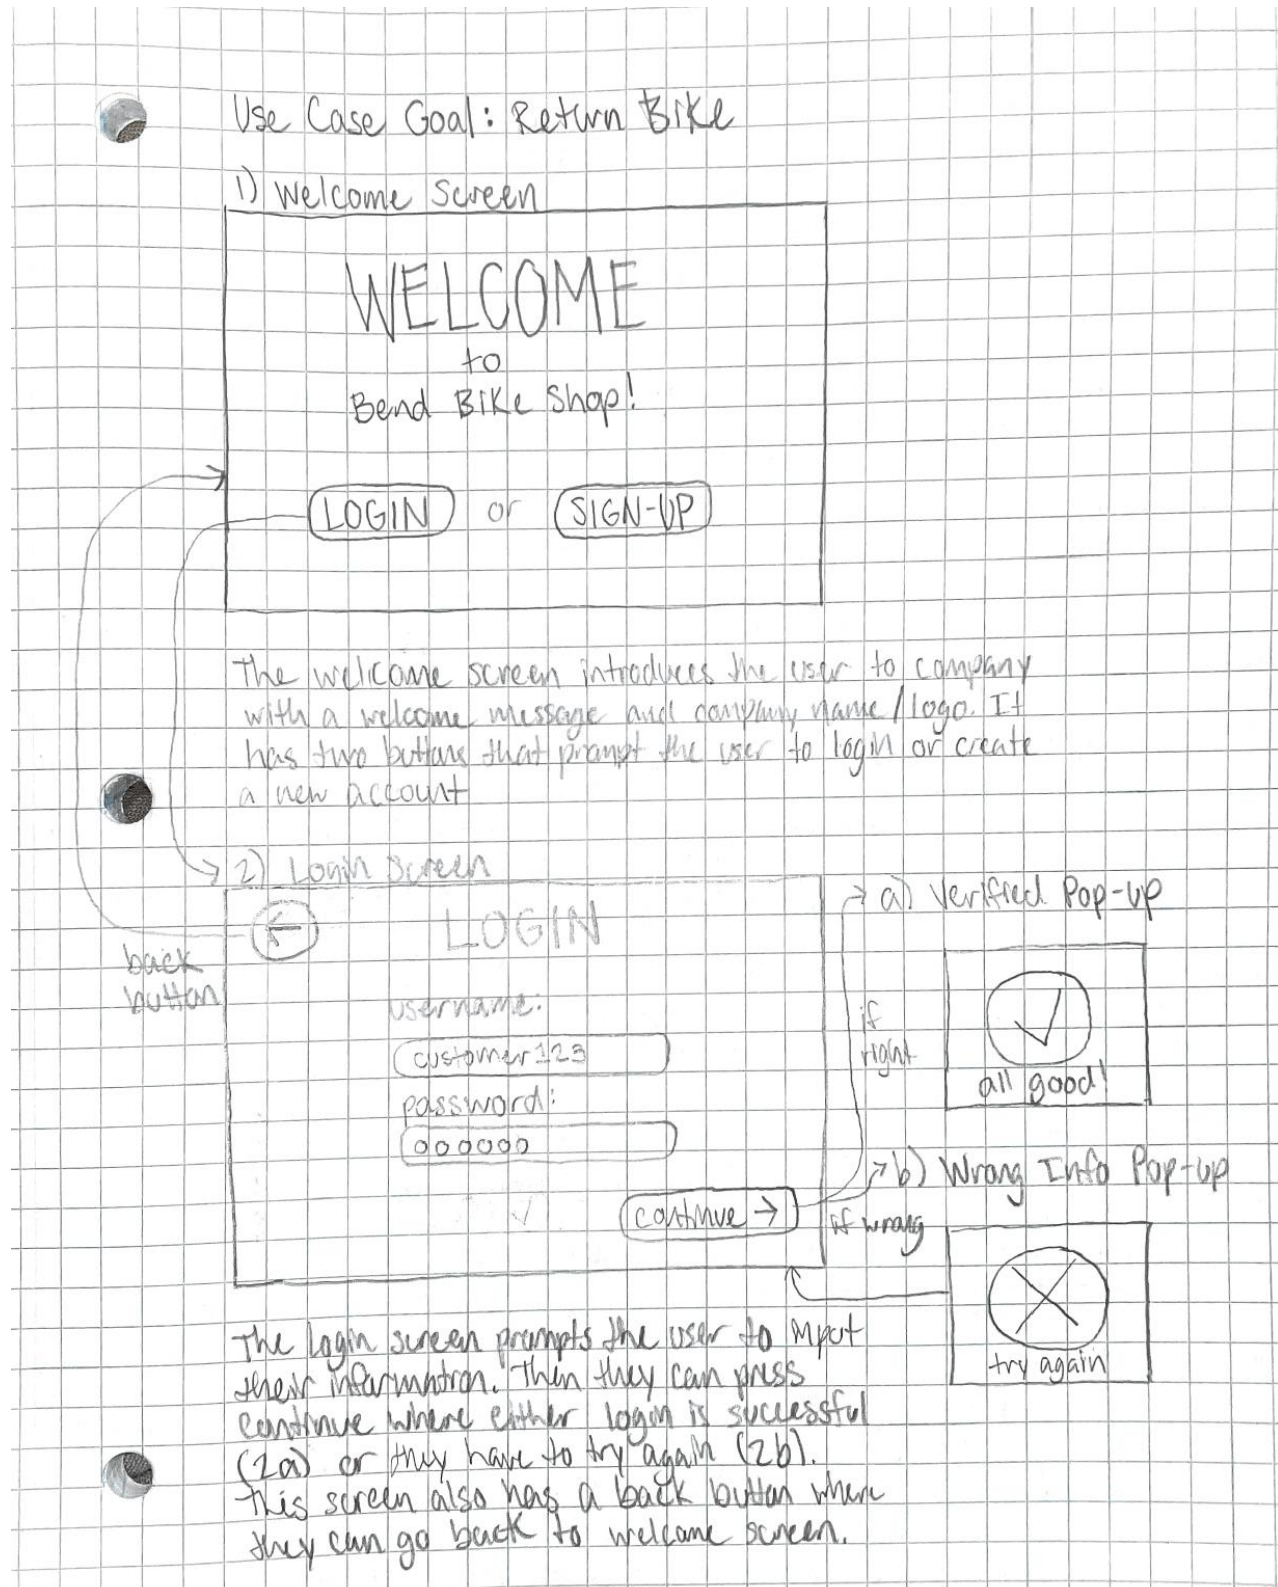 Use Case Goal: Return Bike
1) Welcome Screen
WELCOME
to
Bend Bike Shop!
LOGIN or SIGN-UP
The welcome screen introduces the user to company
with a welcome message and company name/logo. It
has two buttons that prompt the user to login or create
a new account
2) Login Screen
← LOGIN
back
button
username:
customer123
password:
oooooo
continue →
a) Verified Pop-up
if
right
all good!
b) Wrong Info Pop-up
if wrong
try again
The login screen prompts the user to input
their information. Then they can press
continue where either login is successful
(2a) or they have to try again (2b).
This screen also has a back button where
they can go back to welcome screen.